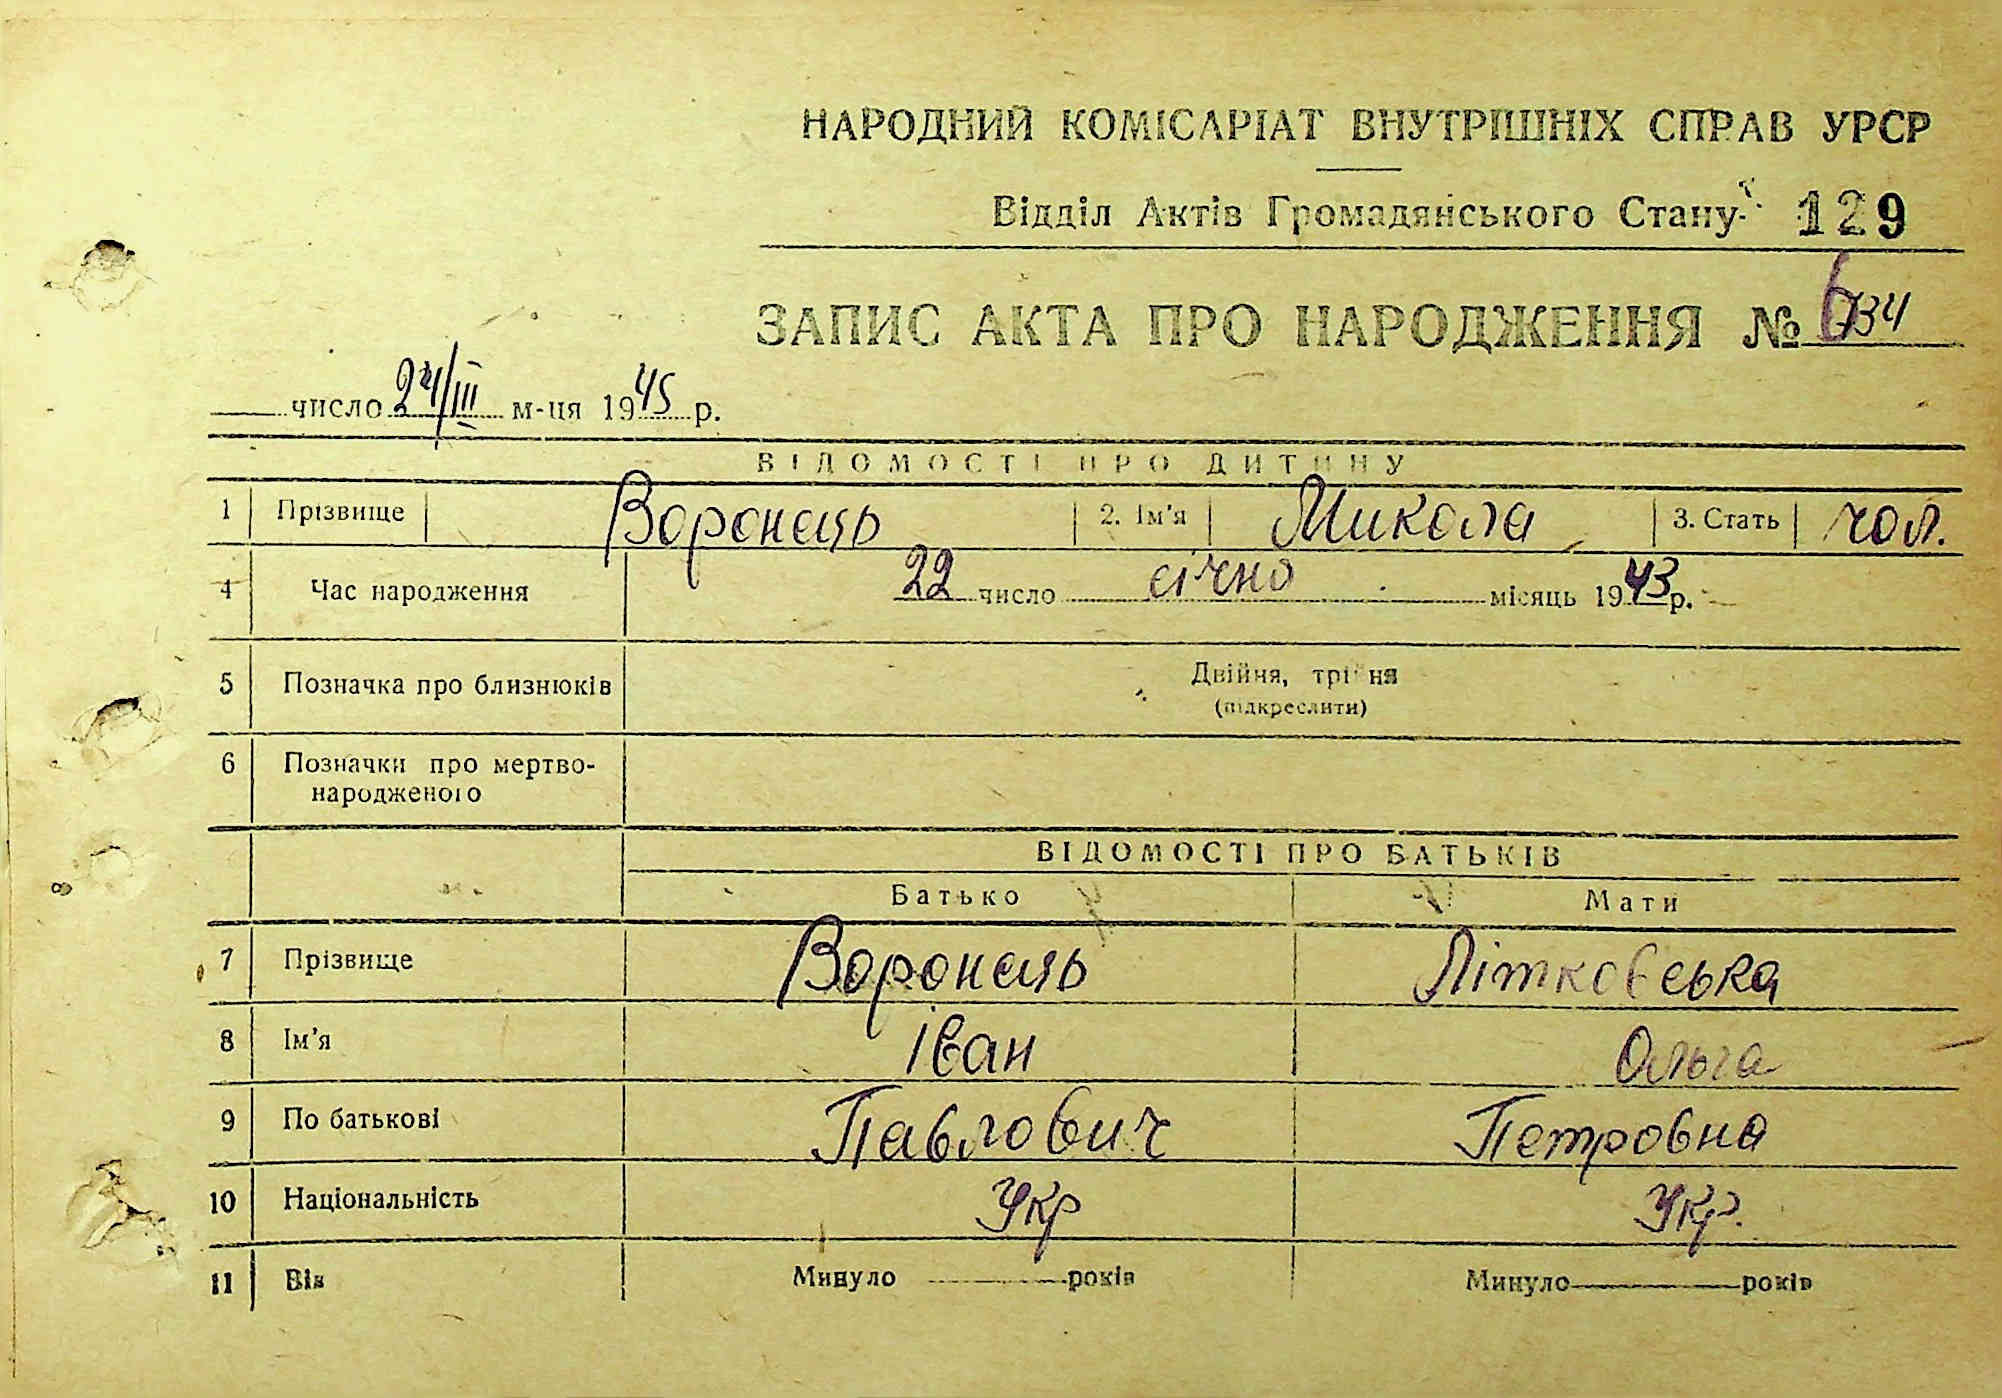 НАРОДНИЙ КОМІСАРІАТ ВНУТРІШНІХ СПРАВ УРСР
Відділ Актів Громадянського Стану 129
ЗАПИС АКТА ПРО НАРОДЖЕННЯ №
число 24/III м-ця 1945 р.
ВІДОМОСТІ ПРО ДИТИНУ
1 Прізвище Воронець 2. Ім'я Микола 3. Стать чол.
4 Час народження 22 число січно місяць 1943 р.
5 Позначка про близнюків Двійня, трійня
(підкреслити)
6 Позначки про мертво-
народженого
ВІДОМОСТІ ПРО БАТЬКІВ
Батько Мати
7 Прізвище Воронець Літковська
8 Ім'я Іван Ольга
9 По батькові Павлович Петровна
10 Національність Укр Укр.
11 Вік Минуло років Минуло років